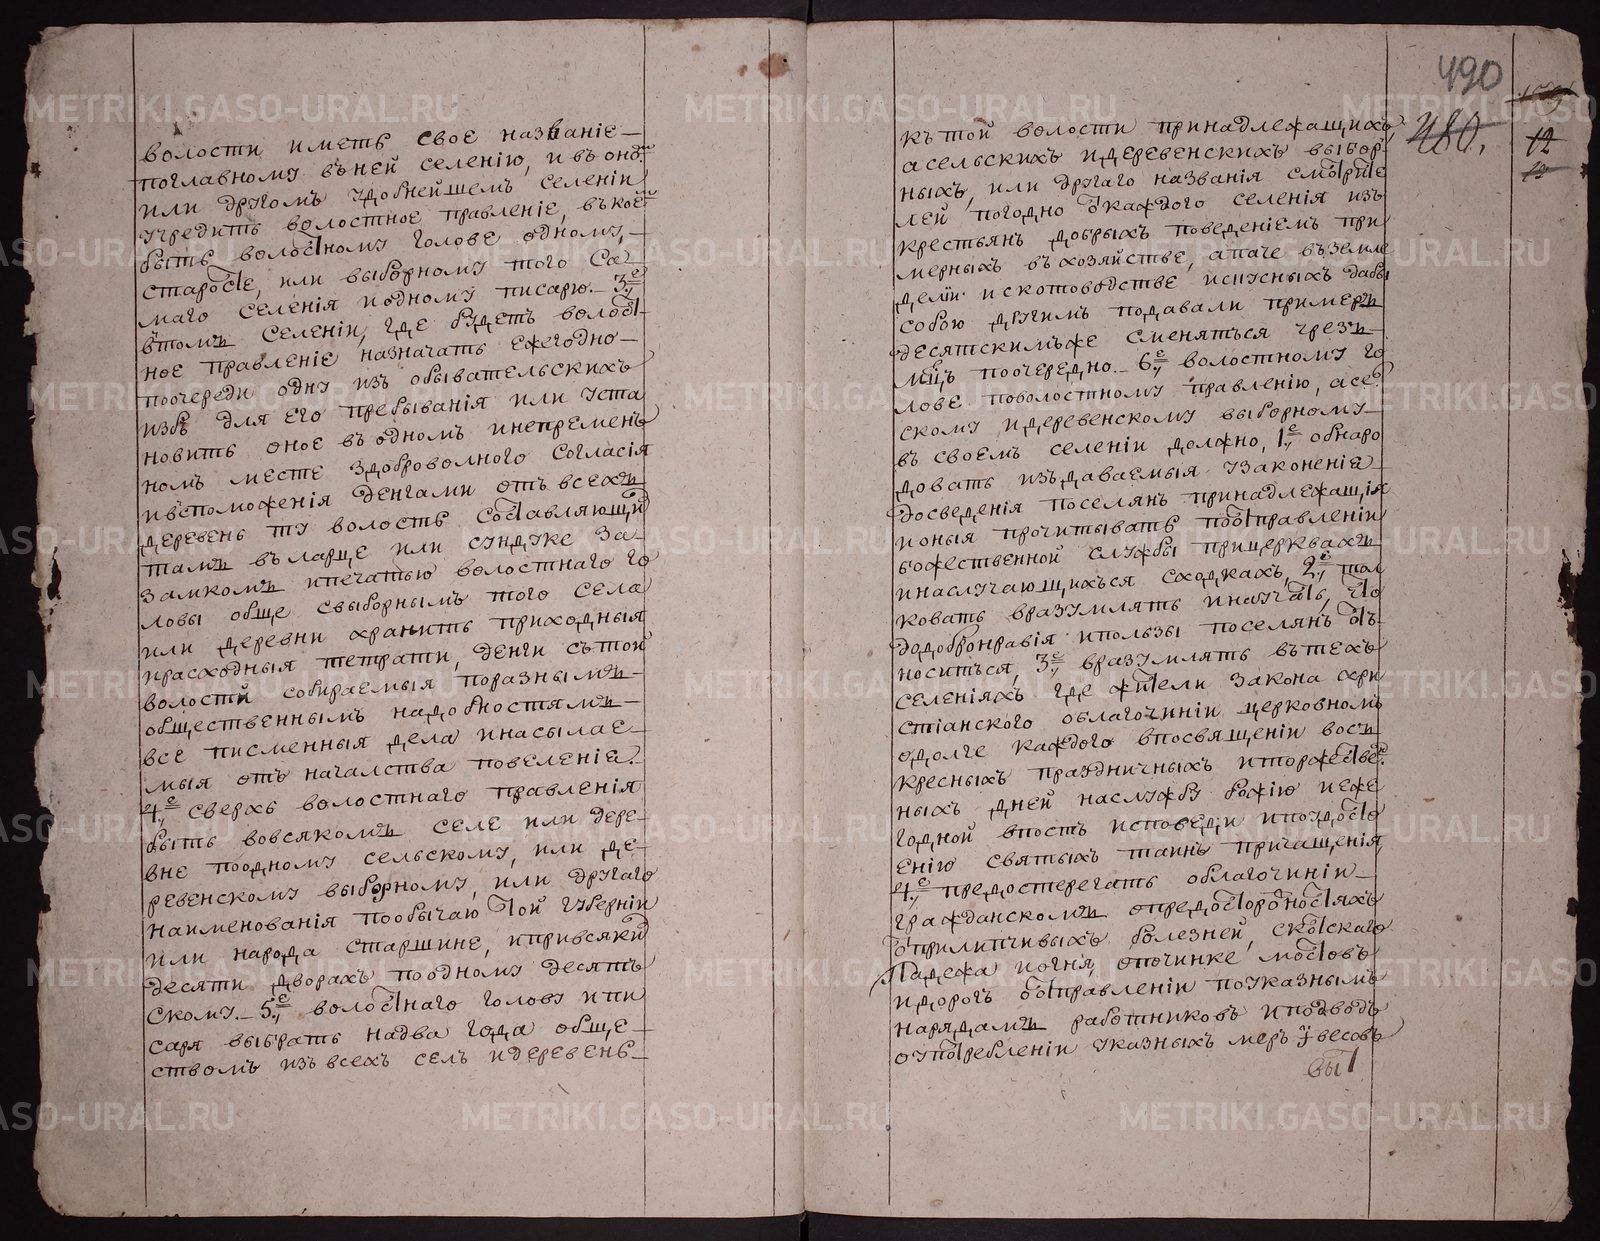 волости иметь свое названіе —
поглавному въней селенію, ивъоно
или другомъ удобнейшемъ селеніи
учредить волостное правленіе, въкое
быть волостному голове одному, —
старосте, или выборному того са
маго селенія иодному писарю. — 3е
втомъ селеніи, где будетъ волост
ное правленіе назначать ежегодно —
поочереди одну изъ обывательскихъ
избъ для его пребыванія или уста
новить оное въодномъ инепремень
номъ месте здоброволного согласія
ивспоможенія денгами отъ всехъ
деревень ту волость составляющий
тамъ въларце или сундуке за —
замкомъ ипечатью волостнаго го
ловы обще свыборнымъ того села
или деревни хранить приходныя
ирасходныя тетрати, денги сътой
волости собираемыя поразнымъ —
общественнымъ надобностямъ —
все писменныя дела инасылае —
мыя отъ началства повеленіе.
4е сверхъ волостнаго правленія
быть вовсякомъ селе или дере —
вне поодному сельскому, или де —
ревенскому выборному, или другаго
наименованія пообычаю той губерніи
или народа старшине, ипривсяки
десяти дворахъ поодному десять
скому. — 5е волостнаго голову ипи
саря выбрать надва года обще —
ствомъ изъвсехъ селъ идеревень —
490
480.
12
къ той волости принадлежащихъ,
асельскихъ идеревенскихъ выбор
ныхъ, или другаго названія смотрите
лей погодно откаждого селенія изъ
крестьянъ добрыхъ поведеніемъ при
мерныхъ въхозяйстве, апаче въземле
делии искотоводстве искусныхъ дабы
собою другимъ подавали примеръ
десятскимъже сменяться чрезъ
мцъ поочередно. — 6е волостному го
лове поволостному правленію, асе
скому идеревенскому выборному —
въ своемъ селеніи должно, 1е обнаро
довать издаваемыя узаконеніе —
досведенія поселянъ принадлежащія
ионыя прочитывать поотправленіи
божественной службы прицерквахъ
инаслучающихъся сходкахъ, 2е тол
ковать вразумлять инаучать, что
кодобронравія ипользы поселянъ отъ
носиться, 3е вразумлять вътехъ
селеніяхъ где жители закона хри
стіанского облагочиніи церковномъ
одолге каждого впосвященіи воск
кресныхъ праздничныхъ иторжестве
ныхъ дней наслужбу божію иеже
годной впость исповеди ипоудосто
енію святыхъ таинъ причащенія,
4е предостерегать облагочиніи —
гражданскомъ опредосторожностяхъ
отприлипчивыхъ болезней, скотскаго
падежа иогня, опочинке мостовъ
идорогъ оотправленіи поуказнымъ
нарядамъ работниковъ иподводъ
оупотребленіи указныхъ меръ и весовъ
быт